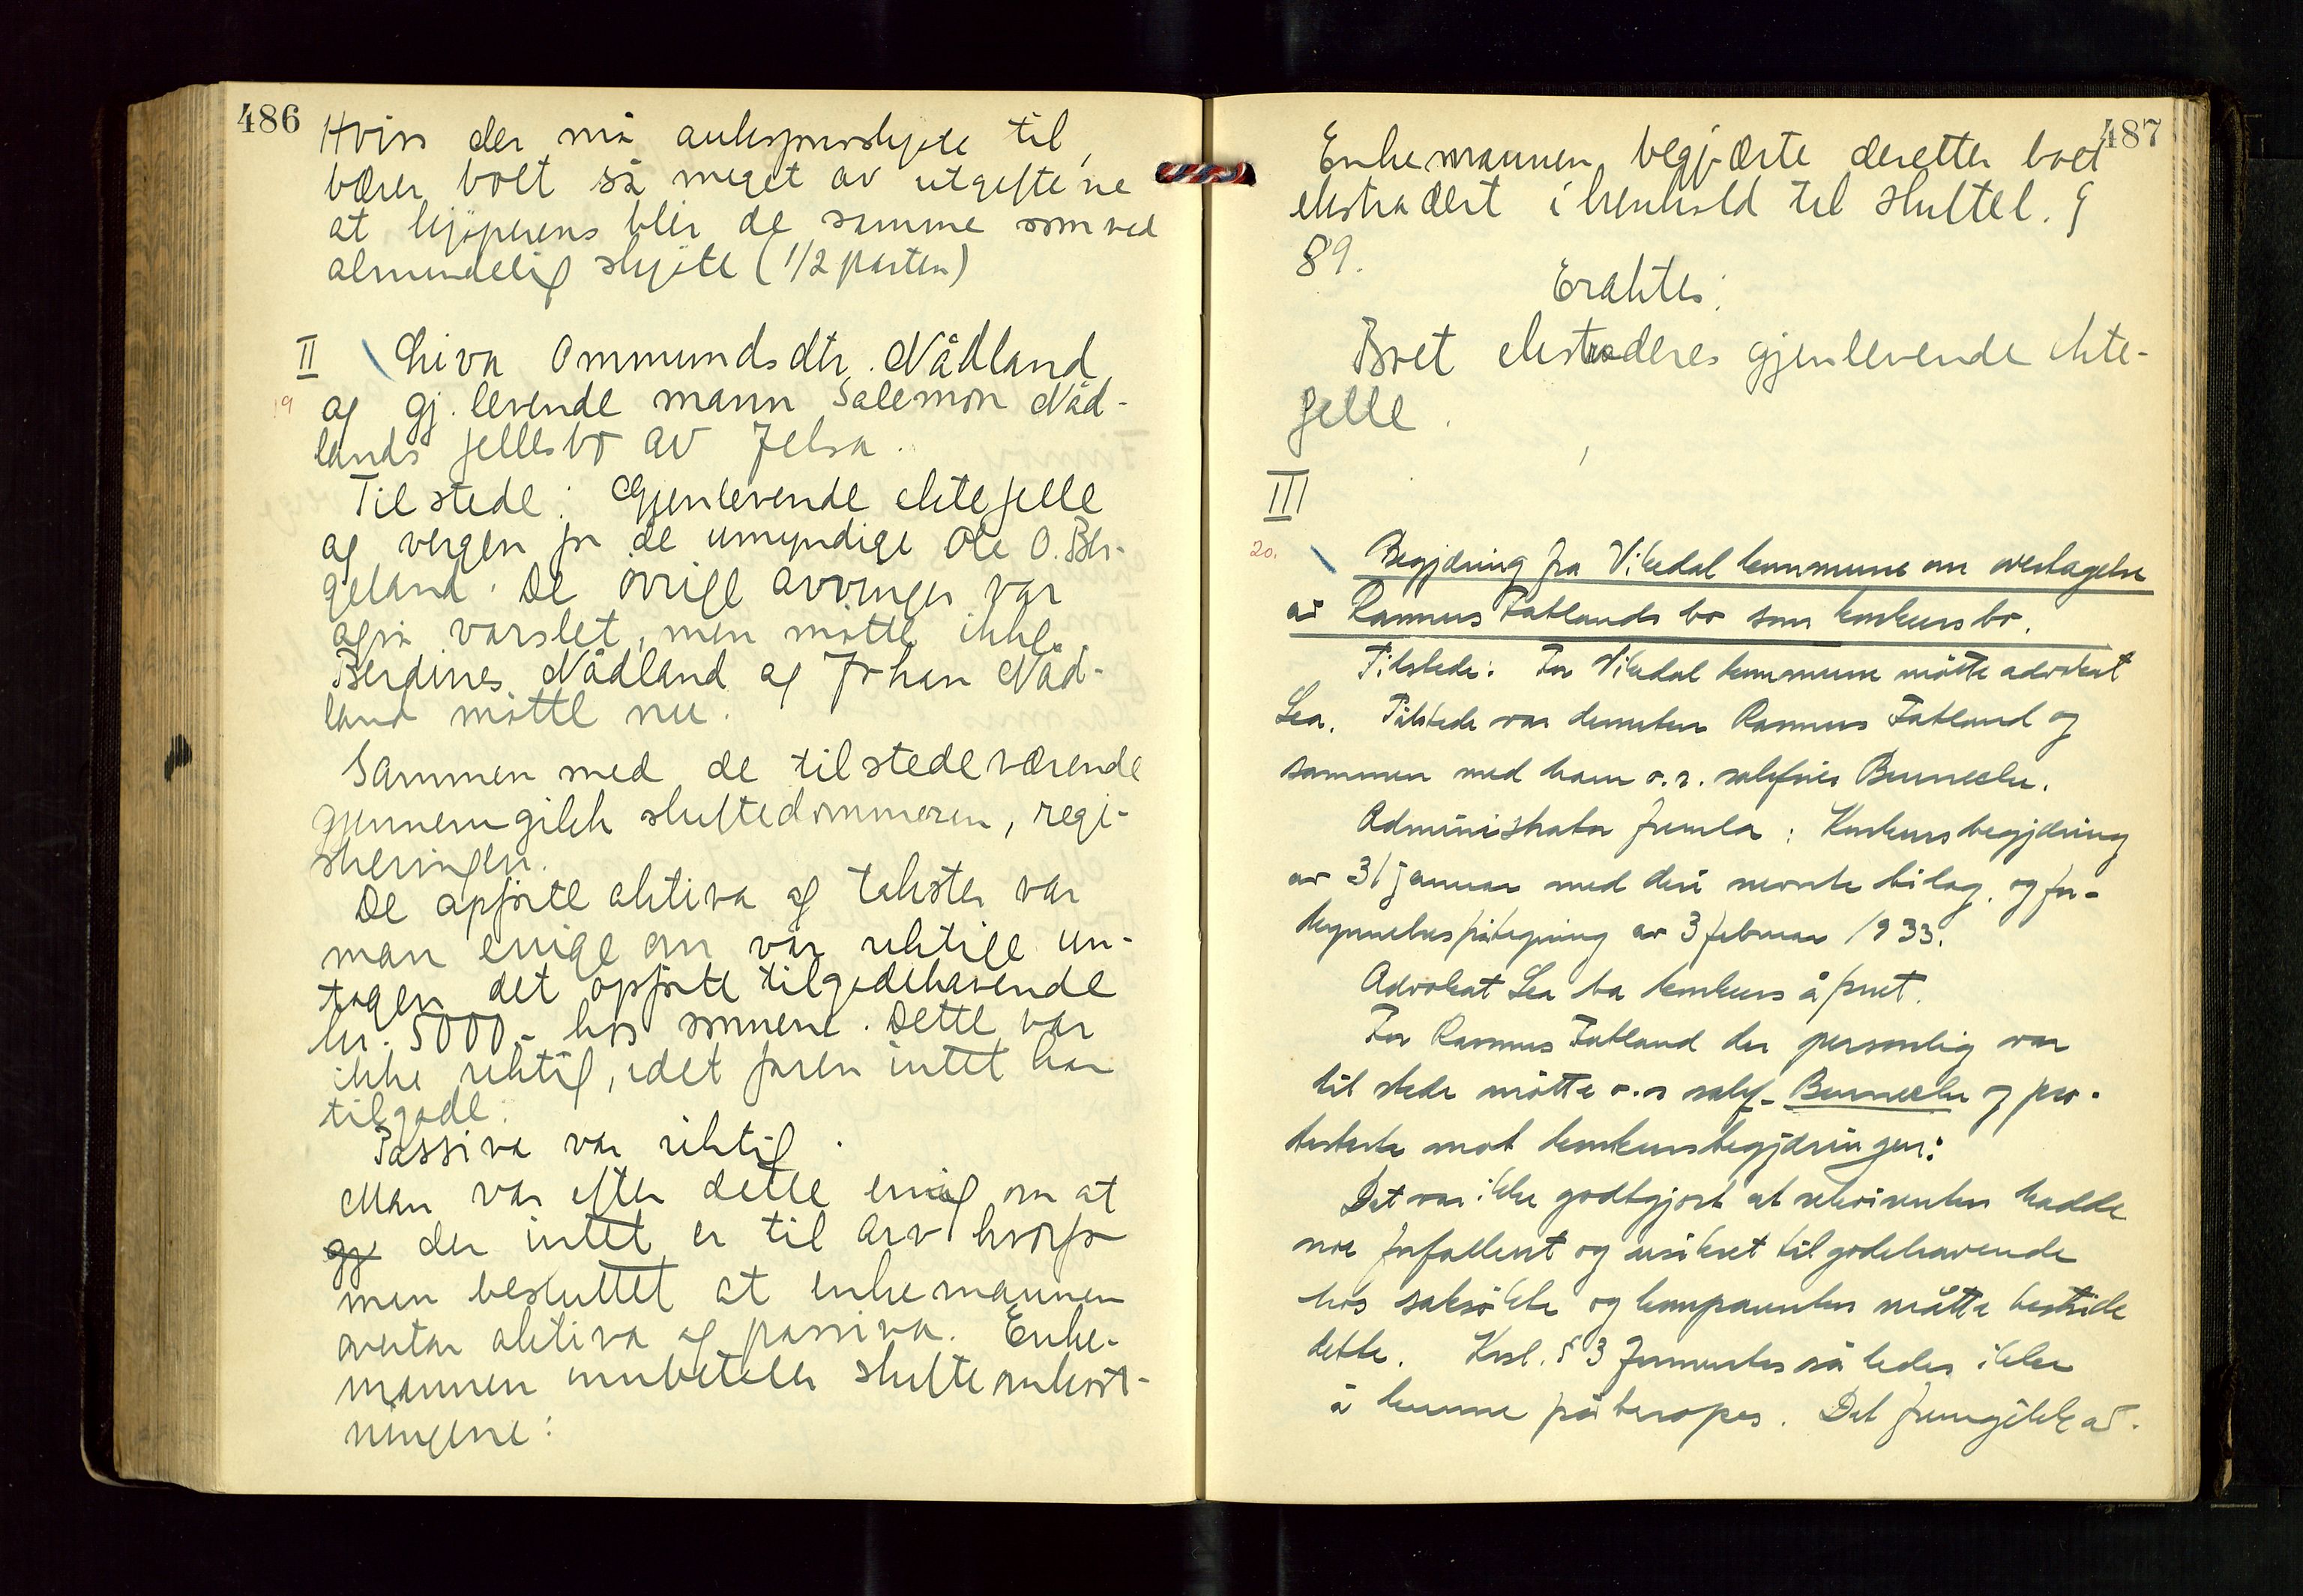 486
Hvis der må auksjonsskjøte til,
bærer boet så meget av utgiftene
at kjøperens blir de samme som ved
almindelig skjøte (1/2 parten)
II Liva Ommundsdtr. Nådland
19 og gj. levende mann Salemon Nåd-
lands fellesbo av Jelsa.
Tilstede: Gjenlevende ektefelle
og vergen for de umyndige Ole O. Ber-
geland. De øvrige arvinger var
også varslet, men møtte ikke.
Berdines Nådland og Johan Nåd-
land møtte nu.
Sammen med de tilstedeværende
gjennemgikk skiftedommeren, regi-
streringen.
De opførte aktiva og takster var
man enige om var riktige un-
tagen det opførte tilgodehavende
kr. 5000.- hos sønnene. Dette var
ikke riktig, idet faren intet har
tilgode.
Passiva var riktig.
Man var efter dette enig om at
gj der intet er til arv hvorfor
man besluttet at enkemannen
overtar aktiva og passiva. Enke-
mannen innbetaler skifteomkost-
ningene:
487
Enkemannen begjærte deretter boet
ekstradert i henhold til skiftel. §
89.
Eraktes:
Boet ekstraderes gjenlevende ekte-
felle.
III
20. Begjæring fra Vikedal kommune om overtagelse
av Rasmus Fatlands bo som konkursbo.
Tilstede: For Vikedal kommune møtte advokat
Lea. Tilstede var dessuten Rasmus Fatland og
sammen med ham o.r. sakfører
Administrator fremla: Konkursbegjæring
av 31 januar med deri nevnte bilag og for-
kynnelsespåtegning av 3 februar 1933.
Advokat Lea ba konkurs åpnet.
For Rasmus Fatland der personlig var
til stede møtte o.r. sakf. og pro-
testerte mot konkursbegjæringen:
Det var ikke godtgjort at rekvirenten hadde
noe forfallent og usikret tilgodehavende
hos saksøkte og komparenten måtte bestride
dette. Kosl. § 3 formentes således ikke
å kunne påberopes. Det fremgikk av